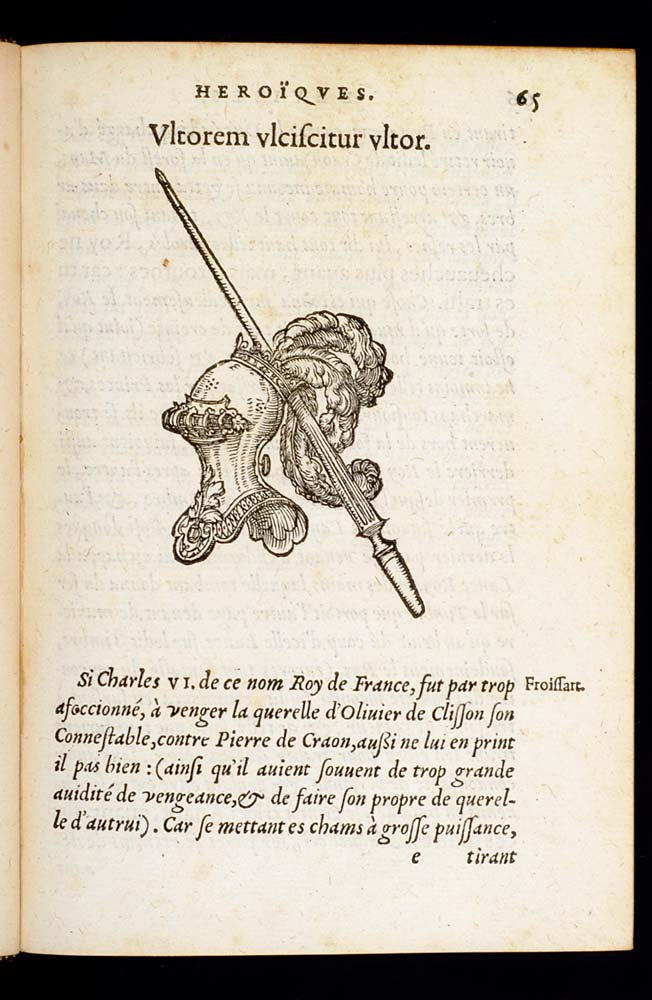 HEROÏQVES. 65
Vltorem vlciſcitur vltor.
Si Charles VI. de ce nom Roy de France, fut par trop Froiſſart.
afoccionné, à venger la querelle d'Oliuier de Cliſſon ſon
Conneſtable, contre Pierre de Craon, außi ne lui en print
il pas bien : (ainſi qu'il auient ſouuent de trop grande
auidité de vengeance, & de faire ſon propre de querel-
le d'autrui). Car ſe mettant es chams à groſſe puiſſance,
e tirant